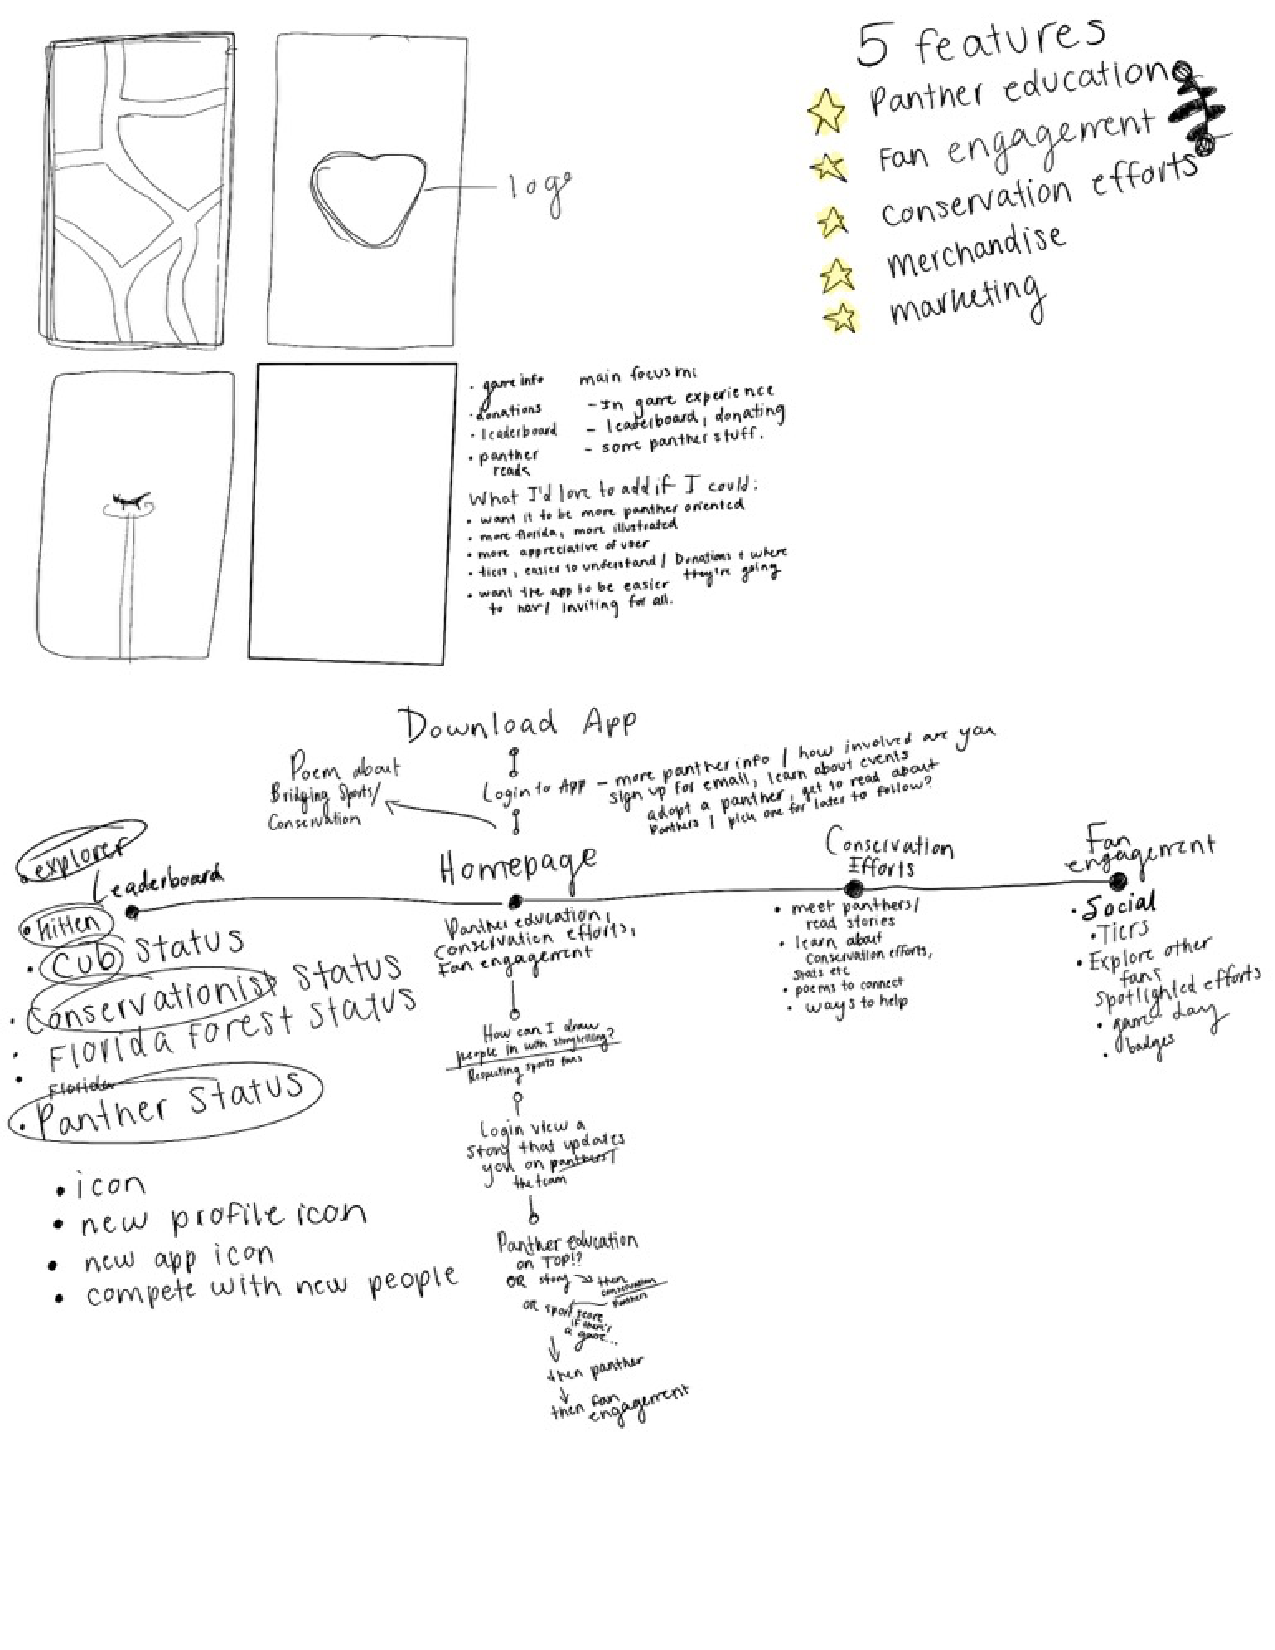 logo
5 features
Panther education
Fan engagement
Conservation efforts
Merchandise
marketing
• game info
• donations
• leaderboard
• panther
reads
main focus
- In game experience
- leaderboard, donating
- some panther stuff.
What I'd love to add if I could:
• want it to be more panther oriented
• more florida, more illustrated
• more appreciative of user
• tiers, easier to understand / Donations & where
they're going
• want the app to be easier
to nav/ inviting for all.
Download App
Login to App - more panther info / how involved are you
sign up for email, learn about events
adopt a panther, get to read about
Panthers / pick one for later to follow?
Poem about
Bridging Sports/
Conservation
Homepage
Panther education,
Conservation efforts,
Fan engagement
How can I draw
people in with storytelling?
Respecting sports fans
Login view a
story that updates
you on panthers/
the team
Panther education
on TOP!?
OR story → then
conservation
OR sport score
if there's
a game...
then panther
then fan
engagement
explorer
Leaderboard
• kitten
• Cub status
• Conservationist status
• Florida forest status
• Florida
• Panther status
• icon
• new profile icon
• new app icon
• compete with new people
Conservation
Efforts
• meet panthers/
read stories
• learn about
conservation efforts,
stats etc
• poems to connect
• ways to help
Fan
engagement
• Social
• Tiers
• Explore other
fans
spotlighted efforts
• game day
• badges